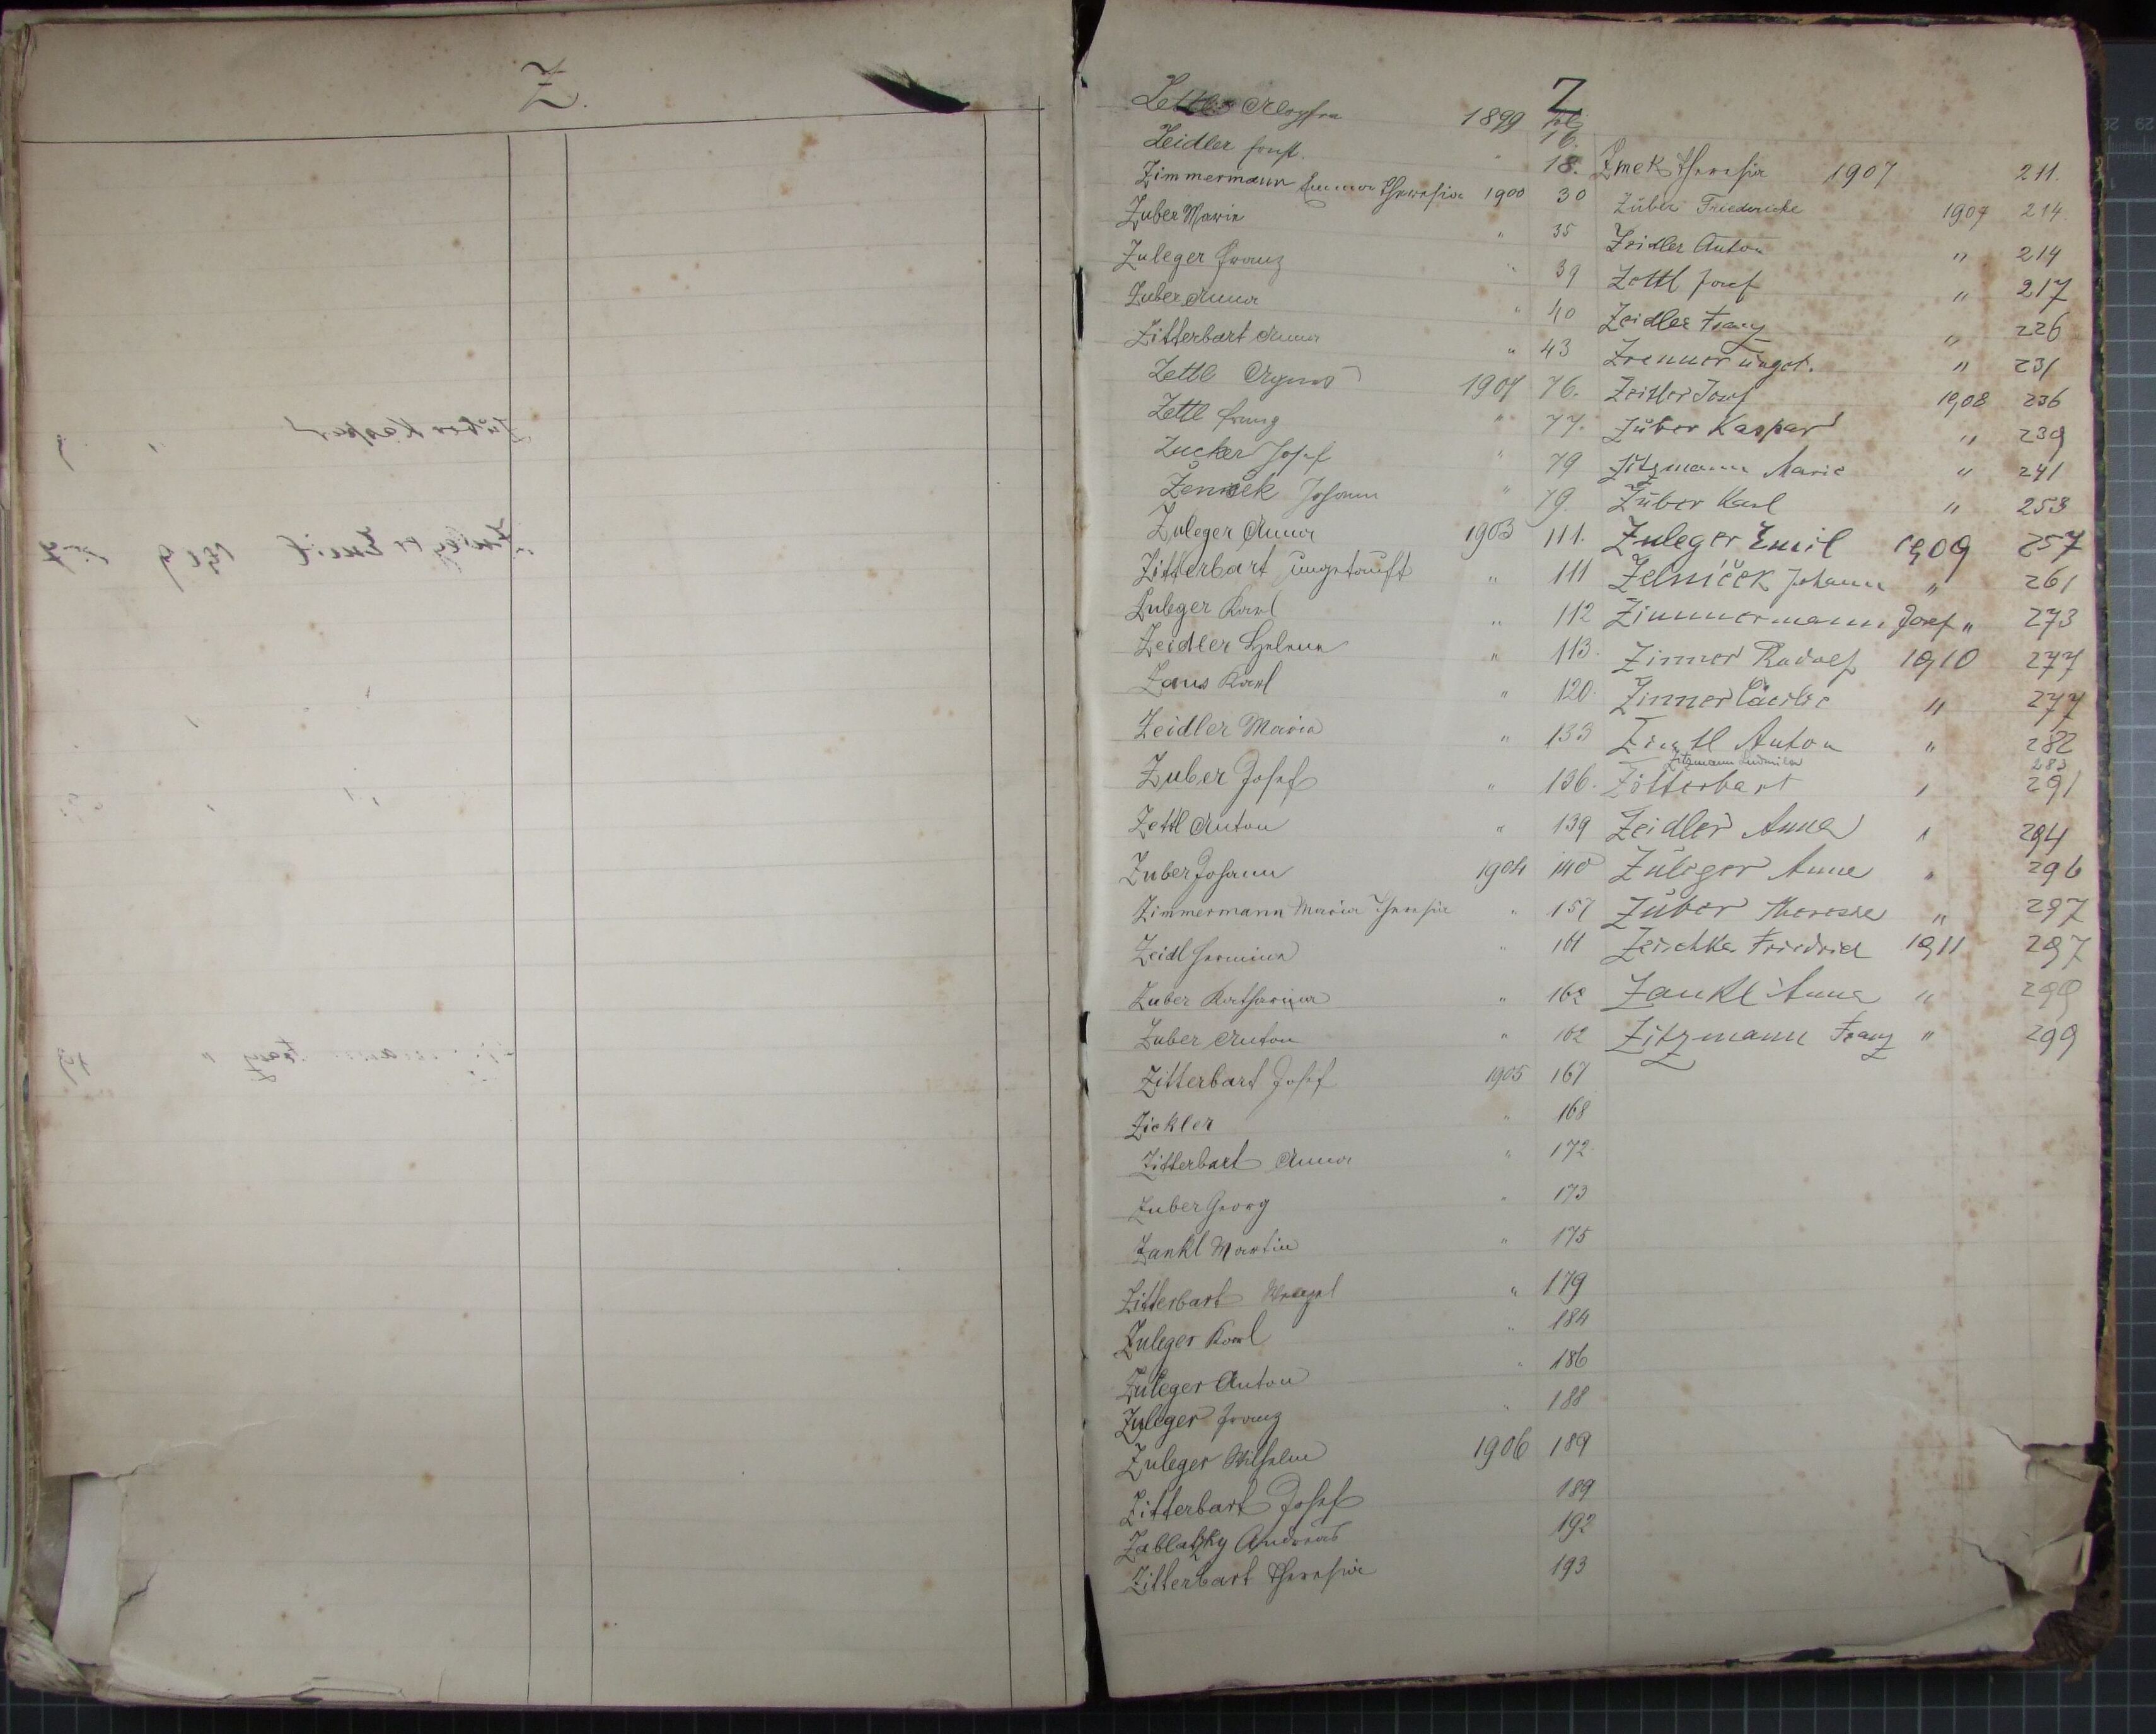 Z.
Z
Zettl Aloysia 1899 fol: 16.
Zeidler Ernst. " 18.
Zimmermann Emma Theresia 1900 30
Zuber Marie " 35
Zuleger Franz " 39
Zuber Anna " 40
Zitterbart Anna " 43
Zettl Agnes 1901 76.
Zettl Franz " 77.
Zucker Josef " 79
Johann " 79.
Zuleger Anna 1903 111.
Zitterbart ungetauft " 111
Zuleger Karl " 112
Zeidler Helena " 113.
Zaus Karl " 120.
Zeidler Maria " 133
Zuber Josef " 136.
Zettl Anton " 139
Zuber Johann 1904 140
Zimmermann Maria Theresia " 157
Zeidl Hermina " 161
Zuber Katharina " 162
Zuber Anton " 162
Zitterbart Josef 1905 167
Zickler " 168
Zitterbart Anna " 172
Zuber Georg " 173
Zankl Martin " 175
Zitterbart Wenzel " 179
Zuleger Karl " 184
Zuleger Anton " 186
Zuleger Franz " 188
Zuleger Wilhelm 1906 189
Zitterbart Josef 189
Zablatzky Andreas 192
Zitterbart Theresia 193
Zmek Theresia 1907 211.
Züber Friedericke 1907 214.
Zeidler Anton " 214
Zettl Josef " 217
Zeidler Franz " 226
Zrenner unget. " 231
Zeidler Josef 1908 236
Züber Kaspar " 239
Zitzmann Marie " 241
Züber Karl " 253
Zuleger Emil 1909 257
Zelníček Johann " 261
Zimmermann Josef " 273
Zinner Rudolf 1910 277
Zinner Cäcilie " 277
Anton " 282
Zitzmann Ludmila 283
Zötterbart " 291
Zeidler Anna " 294
Züleger Anna " 296
Züber Theresie " 297
Zeischka Friedrich 1911 297
Zankl Anna " 299
Zitzmann Franz " 299